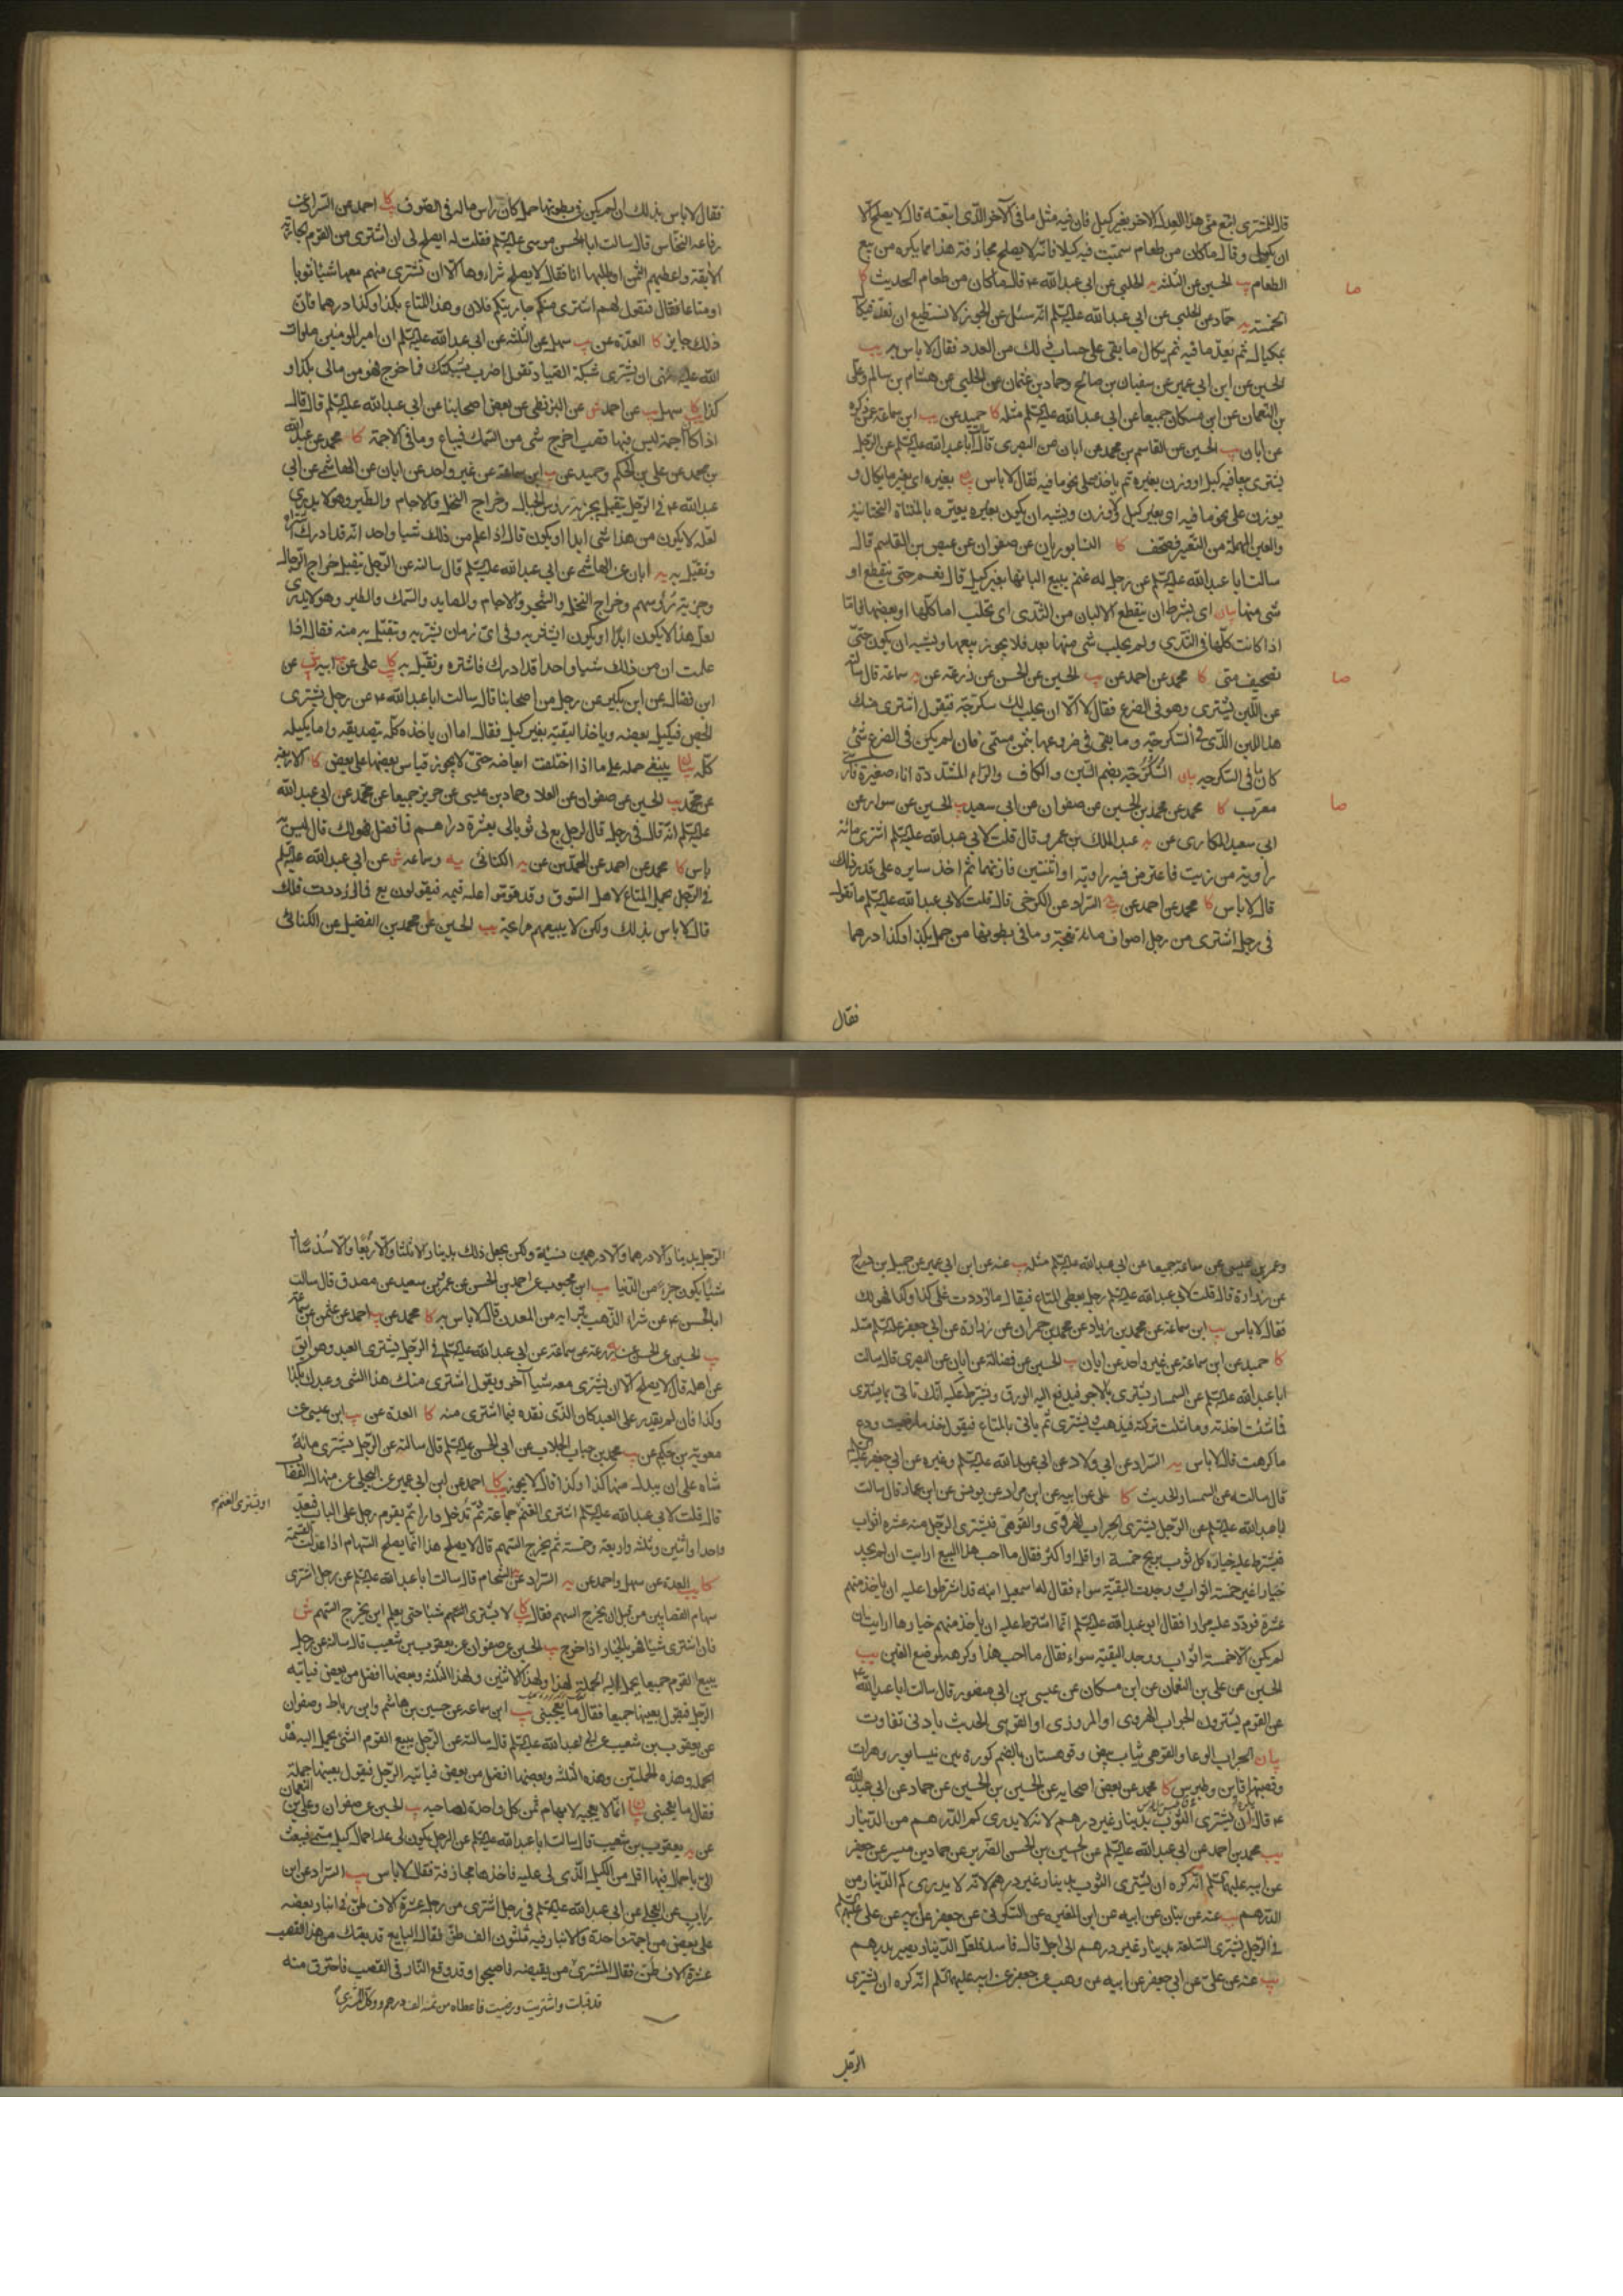 قال للمشتري ابتع مني هذا العدل الاخر بغير كيل فان فيه مثل ما في الاخر الذي ابتعته قال لا يصلح الا
ان يكيل وقال ما كان من طعام سميت فيه كيلا فانه لا يصلح مجازفة هذا مما يكره من بيع
الطعام يب الحسين عن الثلثة يه الحلبي عن ابي عبد الله ع قال ما كان من طعام الحديث كا
الخمسة يه حماد عن الحلبي عن ابي عبد الله عليه السلم انه سئل عن الجوز لا نستطيع ان نعده فيكال
بمكيال ثم يعد ما فيه ثم يكال ما بقي على حساب ذلك من العدد فقال لا باس به يب
الحسين عن ابن ابي عمير عن سفيان بن صالح وحماد بن عثمان عن الحلبي عن هشام بن سالم وعلي
بن النعمان عن ابن مسكان جميعا عن ابي عبد الله عليه السلم مثله كا حميد عن يب ابن سماعة عمن ذكره
عن ابان يب الحسين عن القاسم بن محمد عن ابان عن البصري قال سالت ابا عبد الله عليه السلم عن الرجل
يشتري بيعا فيه كيل او وزن بغيره ثم ياخذ على نحو ما فيه فقال لا باس بيان بغيره اي بغير ما يكال و
يوزن على نحو ما فيه اي بغير كيل ولا وزن ويشبه ان يكون بغيره يعيره بالمثناة التحتانية
والعين المهملة من التعيير فصحف كا النيسابوريان عن صفوان عن عيص بن القاسم قال
سالت ابا عبد الله عليه السلم عن رجل له غنم يبيع البانها بغير كيل قال نعم حتى ينقطع او
شي منها بيان اي بشرط ان ينقطع الالبان من الثدي اي تحلب اما كلها او بعضها فاما
اذا كانت كلها في الثدي ولم يحلب شي منها بعد فلا يجوز بيعها ويشبه ان يكون حتى
تصحيف متى كا محمد عن احمد عن يب الحسين عن الحسن عن زرعة عن يه سماعة قال سالته
عن اللبن يشترى وهو في الضرع فقال لا الا ان يحلب لك سكرجة فيقول اشتري منك
هذا اللبن الذي في السكرجة وما بقي في ضروعها بثمن مسمى فان لم يكن في الضرع شي
كان ما في السكرجة بيان السكرجة بضم السين والكاف والراء المشددة اناء صغيرة فارسي
معرب كا محمد عن محمد بن الحسين عن صفوان عن ابي سعيد يب الحسين عن سوار عن
ابي سعيد المكاري عن يه عبد الملك بن عمرو قال قلت لابي عبد الله عليه السلم اشتري مائة
راوية من زيت فاعترض فيه راوية او اثنتين فازنهما ثم اخذ سايره على قدر ذلك
قال لا باس كا محمد عن احمد عن يه السراد عن الكرخي قال قلت لابي عبد الله عليه السلم ما تقول
في رجل اشترى من رجل اصواف مائة نعجة وما في بطونها من حمل بكذا وكذا درهما
فقال
فقال لا باس بذلك ان لم يكن في بطونها حمل كان راس ماله في الصوف كا احمد عن السراد عن
رفاعة النخاس قال سالت ابا الحسن موسى عليه السلم فقلت له ايصلح لي ان اشتري من القوم الجارية
الابقة واعطيهم الثمن واطلبها انا فقال لا يصلح شراءها الا ان تشتري منهم معها شيئا ثوبا
او متاعا فقال فتقول لهم اشتري منكم جاريتكم فلان وهذا المتاع بكذا وكذا درهما فان
ذلك جايز كا العدة عن يب سهل عن الثلثة عن ابي عبد الله عليه السلم ان امير المومنين صلوات
الله عليه نهى ان يشترى شبكة الصياد تقول اضرب بشبكتك فما خرج فهو من مالي بكذا و
كذا كا يب سهل عن احمد ش عن البزنطي عن بعض اصحابنا عن ابي عبد الله عليه السلم قال قال
اذا كانت اجمة ليس فيها قصب اخرج شي من السمك فيباع وما في الاجمة كا محمد عن عبد الله
بن محمد عن علي بن الحكم وحميد عن يب ابن سماعة عن غير واحد عن ابان عن الهاشمي عن ابي
عبد الله ع في الرجل يتقبل بجزية رؤس الجبال وخراج النخل والاجام والطير وهو لا يدري
لعله لا يكون من هذا شي ابدا او يكون قال اذا علم من ذلك شيا واحد انه قد ادرك اشتراه
وتقبل به يه ابان عن الهاشمي عن ابي عبد الله عليه السلم قال سالته عن الرجل يتقبل خراج الرجال
وجزية رؤسهم وخراج النخل والشجر والاجام والمصايد والسمك والطير وهو لا يدري
لعل هذا لا يكون ابدا او يكون ايشتريه وفي اي زمان يشتريه ويتقبل به منه فقال اذا
علمت ان من ذلك شيا واحدا قد ادرك فاشتره وتقبل به كا علي عن ابيه يب عن
ابن فضال عن ابن بكير عن رجل من اصحابنا قال سالت ابا عبد الله ع عن رجل يشتري
الجص فيكيل بعضه وياخذ البقية بغير كيل فقال اما ان ياخذه كله بتصديقه واما يكيله
كله بيان ينبغي حمله على ما اذا اختلفت ابعاضه حتى لا يجوز قياس بعضها على بعض كا الاربعة
عن محمد يب الحسين عن صفوان عن العلا وحماد بن عيسى عن حريز جميعا عن محمد عن ابي عبد الله
عليه السلم انه قال في رجل قال لرجل بع لي ثوبا لي بعشرة دراهم فما فضل فهو لك قال ليس به
باس كا محمد عن احمد عن المحمدين عن يه الكناني يه وسماعة ش عن ابي عبد الله عليه السلم
في الرجل يحمل المتاع لاهل السوق وقد قوموا عليه قيمة فيقولون بع فما ازددت فلك
قال لا باس بذلك ولكن لا يبيعهم مرابحة يب الحسين عن محمد بن الفضيل عن الكناني
وعمر بن عيسى عن سماعة جميعا عن ابي عبد الله عليه السلم مثله يب عنه عن ابن ابي عمير عن جميل بن دراج
عن زرارة قال قلت لابي عبد الله عليه السلم رجل يعطي المتاع فيقال ما ازددت على كذا وكذا فهو لك
فقال لا باس يب ابن سماعة عن محمد بن زياد عن محمد بن حمران عن زرارة عن ابي جعفر عليه السلم مثله
كا حميد عن ابن سماعة عن غير واحد عن ابان يب الحسين عن فضالة عن ابان عن البصري قال سالت
ابا عبد الله عليه السلم عن السمسار يشتري بالاجر فيدفع اليه الورق ويشترط عليه انك تاتي بما يشتري
فما شئت اخذته وما شئت تركته فيذهب فيشتري ثم ياتي بالمتاع فيقول خذ ما رضيت ودع
ما كرهت قال لا باس يه السراد عن ابي ولاد عن ابي عبد الله عليه السلم وغيره عن ابي جعفر عليه السلم
قال سالته عن السمسار الحديث كا علي عن ابيه عن ابن مراد عن يونس عن ابن عمار قال سالت
ابا عبد الله عليه السلم عن الرجل يشتري الجراب الهروي والقوهي فيشتري الرجل منه عشرة اثواب
فيشترط عليه خياره كل ثوب بربح خمسة او اقل او اكثر فقال ما احب هذا البيع ارايت ان لم يجد
خيارا غير خمسة اثواب ووجدت البقية سواء فقال له اسمعيل ابنه قد اشترطوا عليه ان ياخذ منهم
عشرة فردد عليه مرارا فقال ابو عبد الله عليه السلم انما اشترط عليه ان ياخذ منهم خيارها ارايت ان
لم يكن الا خمسة اثواب ووجد البقية سواء فقال ما احب هذا وكرهه لموضع الغبن يب
الحسين عن علي بن النعمان عن ابن مسكان عن عيسى بن ابي منصور قال سالت ابا عبد الله ع
عن القوم يشترون الجراب الهروي او المروزي او القوهي الحديث بادنى تفاوت
بيان الجراب الوعاء والقوهي ثياب بيض وقوهستان بالضم كورة بين نيسابور وهرات
وقصبتها قاين وطبس كا محمد عن بعض اصحابه عن الحسين بن الحسن عن حماد عن ابي عبد الله
ع قال ان يشترى الثوب بدينار غير درهم لانه لا يدري كم الدرهم من الدينار
يب محمد بن احمد عن ابي عبد الله عليه السلم عن الحسين بن الحسن الضرير عن حماد بن ميسر عن جعفر
عن ابيه عليهما السلم انه كره ان يشترى الثوب بدينار غير درهم لانه لا يدرى كم الدينار من
الدرهم يب عنه عن بنان عن ابيه عن ابن المغيرة عن السكوني عن جعفر عن ابيه عن علي عليهم السلم
في الرجل يشتري السلعة بدينار غير درهم الى اجل قال فاسد فلعل الدينار يصير بدرهم
يب عنه عن علي عن ابي جعفر عن ابيه عن وهب عن جعفر عن ابيه عليهما السلم انه كره ان يشتري
الرجل
الرجل بدينار الا درهما والا درهمين نسيئة ولكن يجعل ذلك بدينار الا ثلثا والا ربعا والا سدسا او
شيئا يكون جزءا من الدينار يب ابن محبوب عن احمد بن الحسن عن عمرو بن سعيد عن مصدق قال سالت
ابا الحسن ع عن شراء الذهب بترابه من المعدن قال لا باس به كا محمد عن يب احمد عن عثمن عن سماعة
يب الحسين عن الحسن عن زرعة عن سماعة عن ابي عبد الله عليه السلم في الرجل يشتري العبد وهو ابق
عن اهله قال لا يصلح الا ان يشتري معه شيئا آخر ويقول اشتري منك هذا الشي وعبدك بكذا
وكذا فان لم يقدر على العبد كان الذي نقده فيما اشترى منه كا العدة عن يب ابن عيسى عن
معوية بن حكيم عن يب محمد بن حباب الجلاب عن ابي الحسن عليه السلم قال سالته عن الرجل يشتري مائة
شاة على ان يبدل منها كذا وكذا قال لا يجوز كا احمد عن ابن ابي عمير عن البجلي عن منهال القصاب
قال قلت لابي عبد الله عليه السلم اشتري الغنم جماعة ثم تدخل دارا ثم يقوم رجل على الباب فيعد
او يشتري الغنم
واحدا واثنين وثلثة واربعة وخمسة ثم يخرج السهم قال لا يصلح هذا انما يصلح السهام اذا عدلت القسمة
كا يب العدة عن سهل واحمد عن يه السراد عن الشحام قال سالت ابا عبد الله عليه السلم عن رجل اشترى
سهام القصابين من قبل ان يخرج السهم فقال كا لا يشترى السهم شيئا حتى يعلم اين يخرج السهم ش
فان اشترى شيئا فهو بالخيار اذا خرج يب الحسين عن صفوان عن يعقوب بن شعيب قال سالته عن رجل
يبيع القوم جميعا يحمل اليه الحملة لهذا ولهذا الاثنين ولهذا الثلثة وبعضها افضل من بعض فياتيه
الرجل فيقول بعنيها جميعا فقال ما يعجبني يب ابن سماعة عن حسين بن هاشم وابن رباط وصفوان
عن يعقوب بن شعيب عن ابي عبد الله عليه السلم قال سالته عن الرجل يبيع القوم الشي يحمل اليه هذه
الحملة وهذه الحملتين وهذه الثلثة وبعضها افضل من بعض فياتيه الرجل فيقول بعنيها جملة
فقال ما يعجبني بيان انما لا يعجبه لابهام ثمن كل واحدة لصاحبه يب الحسين عن صفوان وعلي بن النعمان
عن يه يعقوب بن شعيب قال سالت ابا عبد الله عليه السلم عن الرجل يكون لي عليه احمال كيل مسمى فيبعث
الي باحمال فيها اقل من الكيل الذي لي عليه فاخذها مجازفة فقال لا باس يب السراد عن ابن
رياب عن العجلي عن ابي عبد الله عليه السلم في رجل اشترى من رجل عشرة الاف طن في انبار بعضه
على بعض من اجمة واحدة والانبار فيه ثلثون الف طن فقال البايع قد بعتك من هذا القصب
عشرة الاف طن فقال المشتري من يقبضه فاصبحوا وقد وقع النار في القصب فاحترق منه
قد قبلت واشتريت ورضيت فاعطاه من ثمنه الف درهم ووكل المشتري